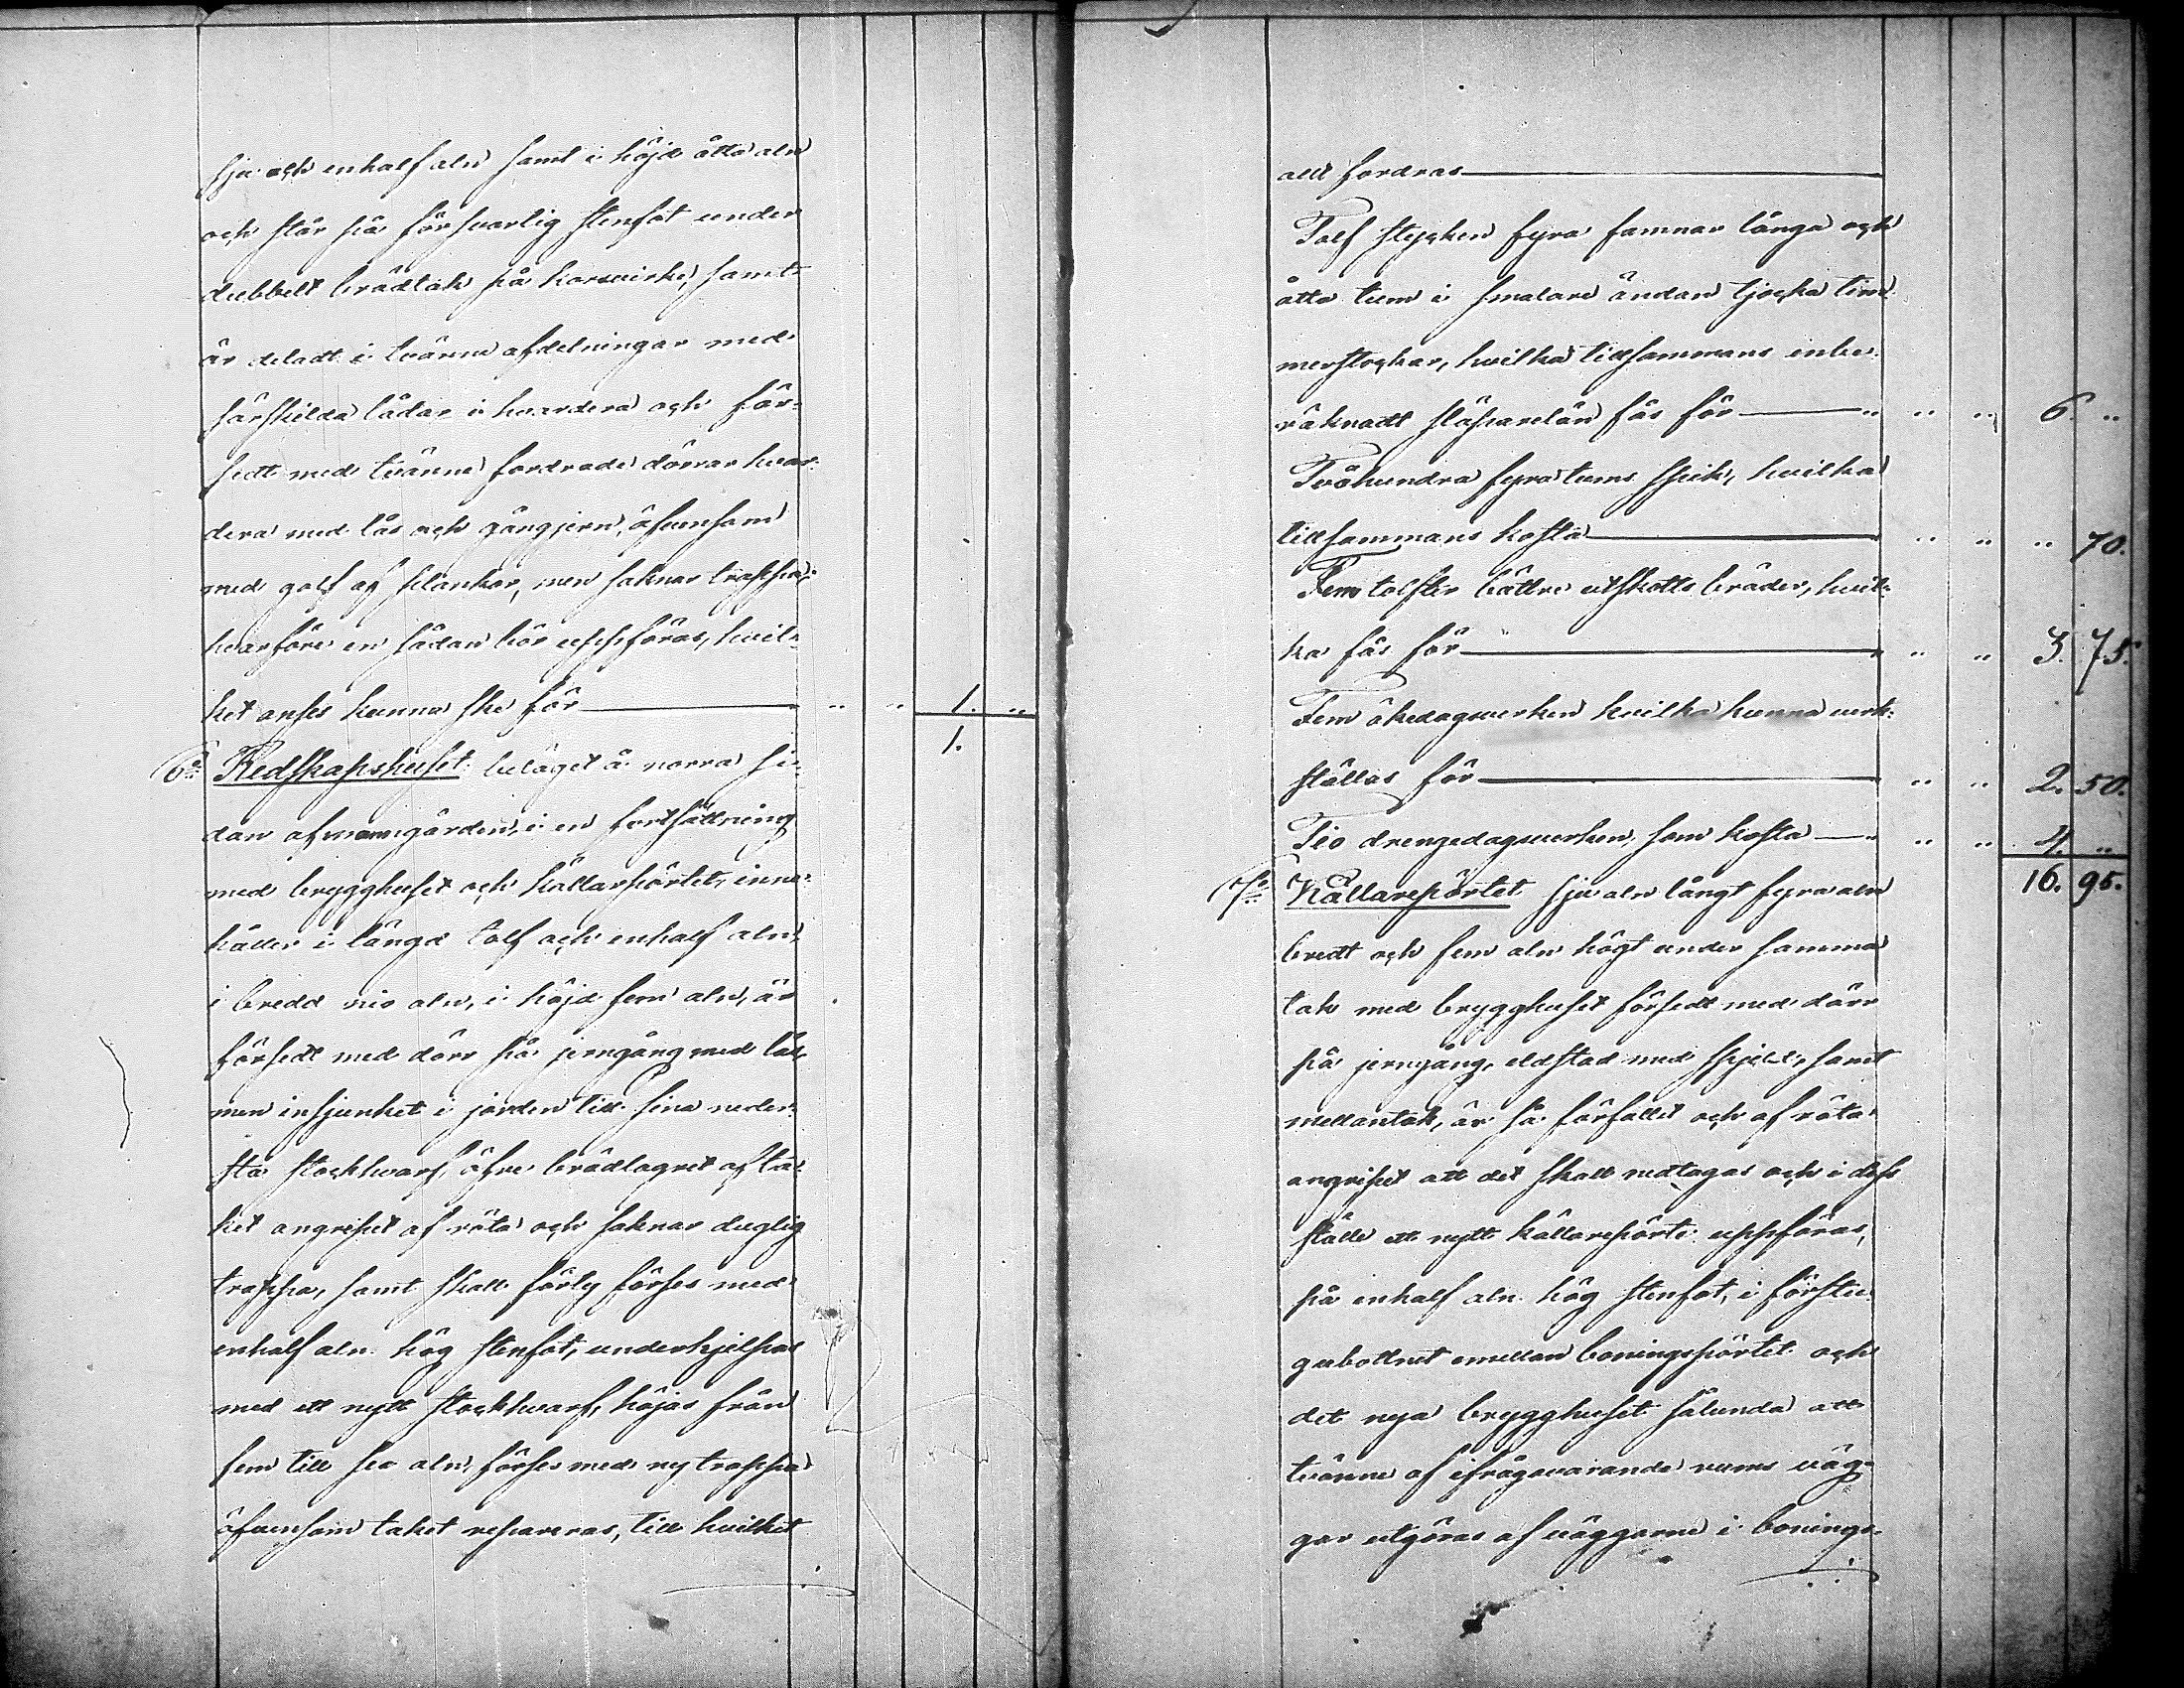 sju och enhalf aln samt i höjd åtta aln
och står på försvarlig stenfot under
dubbelt brädtak på korsvirke, samt
är deladt i tvänne afdelningar med
särskilda lådar i hvardera och för-
sedt med tvänne fordrade dörrar hvar-
dera med lås och gångjern, äfvensom
med golf af plankor, men saknar trappa,
hvarföre en sådan bör uppföras, hvil-
ket anses kunna ske för " " 1. "
1.
6:o Redskapshuset beläget å norra si-
dan af manngården, i en fortsättning
med brygghuset och källarpörtet, inne-
håller i längd tolf och enhalf aln,
i bredd nio aln, i höjd fem aln, är
försedt med dörr på jerngång med lås,
men insjunket i jorden till sina neder-
sta stockhvarf, öfre brädlagret af ta-
ket angripet af röta och saknar duglig
trappa, samt skall förty förses med
enhalf aln hög stenfot, underhjelpas
med ett nytt stockhvarf, höjas från
fem till sex aln, förses med ny trappa
äfvensom taket repareras, till hvilket
allt fordras
Tolf stycken fyra famnar långa och
åtta tum i smalare ändan tjocka tim-
merstockar, hvilka tillsammans inbe-
räknadt släparelön fås för " " " 6. "
Tvåhundra fyra tums spik, hvilka
tillsammans kosta " " " 70.
Fem tolfter bättre utskotts bräder, hvil-
ka fås för " " " 3. 75.
Fem ökedagsverken hvilka kunna verk-
ställas för " " 2. 50.
Tio drengedagsverken, som kosta " " " 4. "
16. 95.
7:o Källarepörtet sju aln långt fyra aln
bredt och fem aln högt under samma
tak med brygghuset försedt med dörr
på jerngång, eldstad med spjell, samt
mellantak, är så förfallet och af röta
angripet att det skall nedtagas och i dess
ställe ett nytt källarepörte uppföras,
på enhalf aln hög stenfot, i förstu-
gubottnet emellan boningspörtet och
det nya brygghuset sålunda att
tvänne af ifrågavarande rums väg-
gar utgöras af väggarne i bonings-